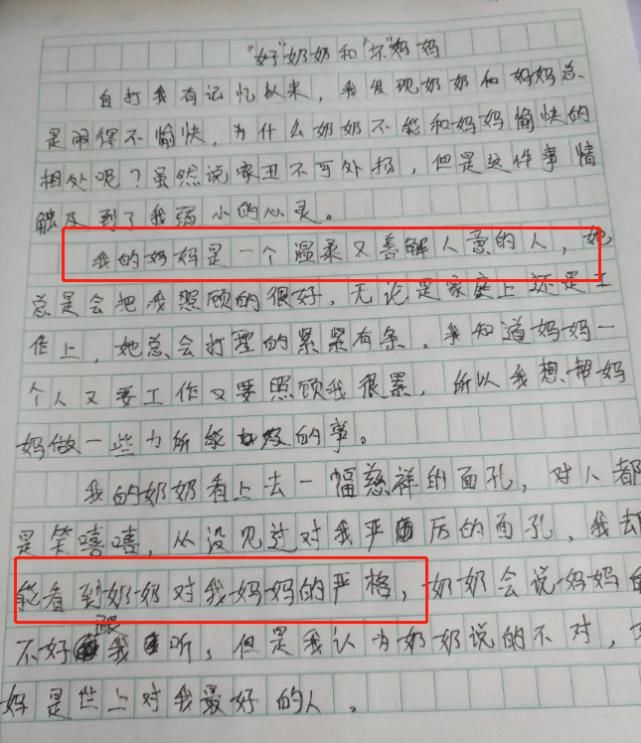 "好"奶奶和"坏"妈妈
自打我有记忆以来，我发现奶奶和妈妈总
是相处不愉快，为什么奶奶不能和妈妈愉快的
相处呢？虽然说家丑不可外扬，但是这件事情
触及到了我弱小的心灵。
我的妈妈是一个温柔又善解人意的人，她
总是会把我照顾的很好，无论是家庭上还是工
作上，她总会打理的紧紧有条，我知道妈妈一
个人又要工作又要照顾我很累，所以我想帮妈
妈做一些力所能及的事。
我的奶奶看上去一幅慈祥的面孔，对人都
是笑嘻嘻，从没见过对我严厉的面孔，我却
能看到奶奶对我妈妈的严格，奶奶会说妈妈的
不好跟我听，但是我认为奶奶说的不对，
妈是世上对我最好的人。